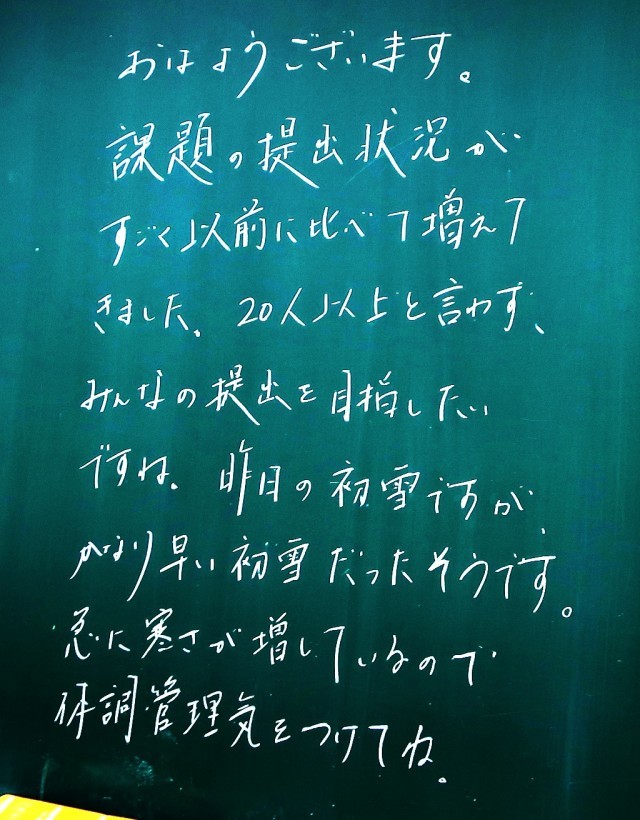 おはようございます。
課題の提出状況が
すごく以前に比べて増えて
きました。20人以上と言わず、
みんなの提出を目指したい
ですね。昨日の初雪ですが、
かなり早い初雪だったそうです。
急に寒さが増しているので
体調管理気をつけてね。